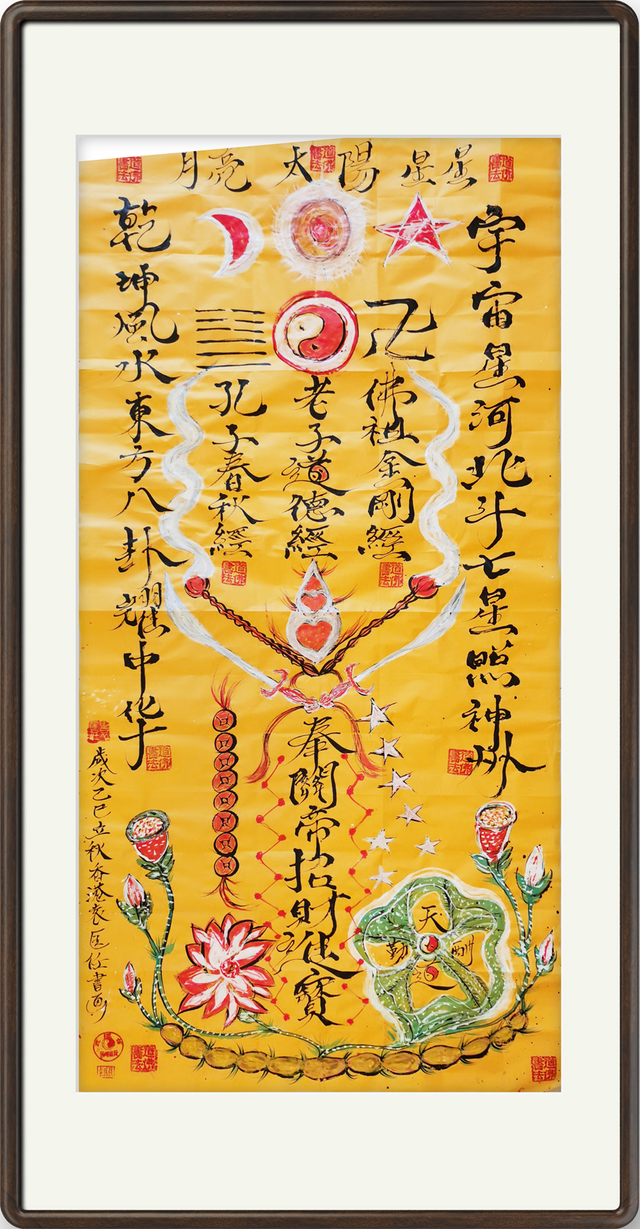 月亮 太陽 星星
宇宙星河北斗七星照神州
佛祖金剛經
老子道德經
孔子春秋經
乾坤風水東方八卦耀中华
奉關帝招財進寶
天道酬勤
歲次乙巳立秋香港袁匡任書画